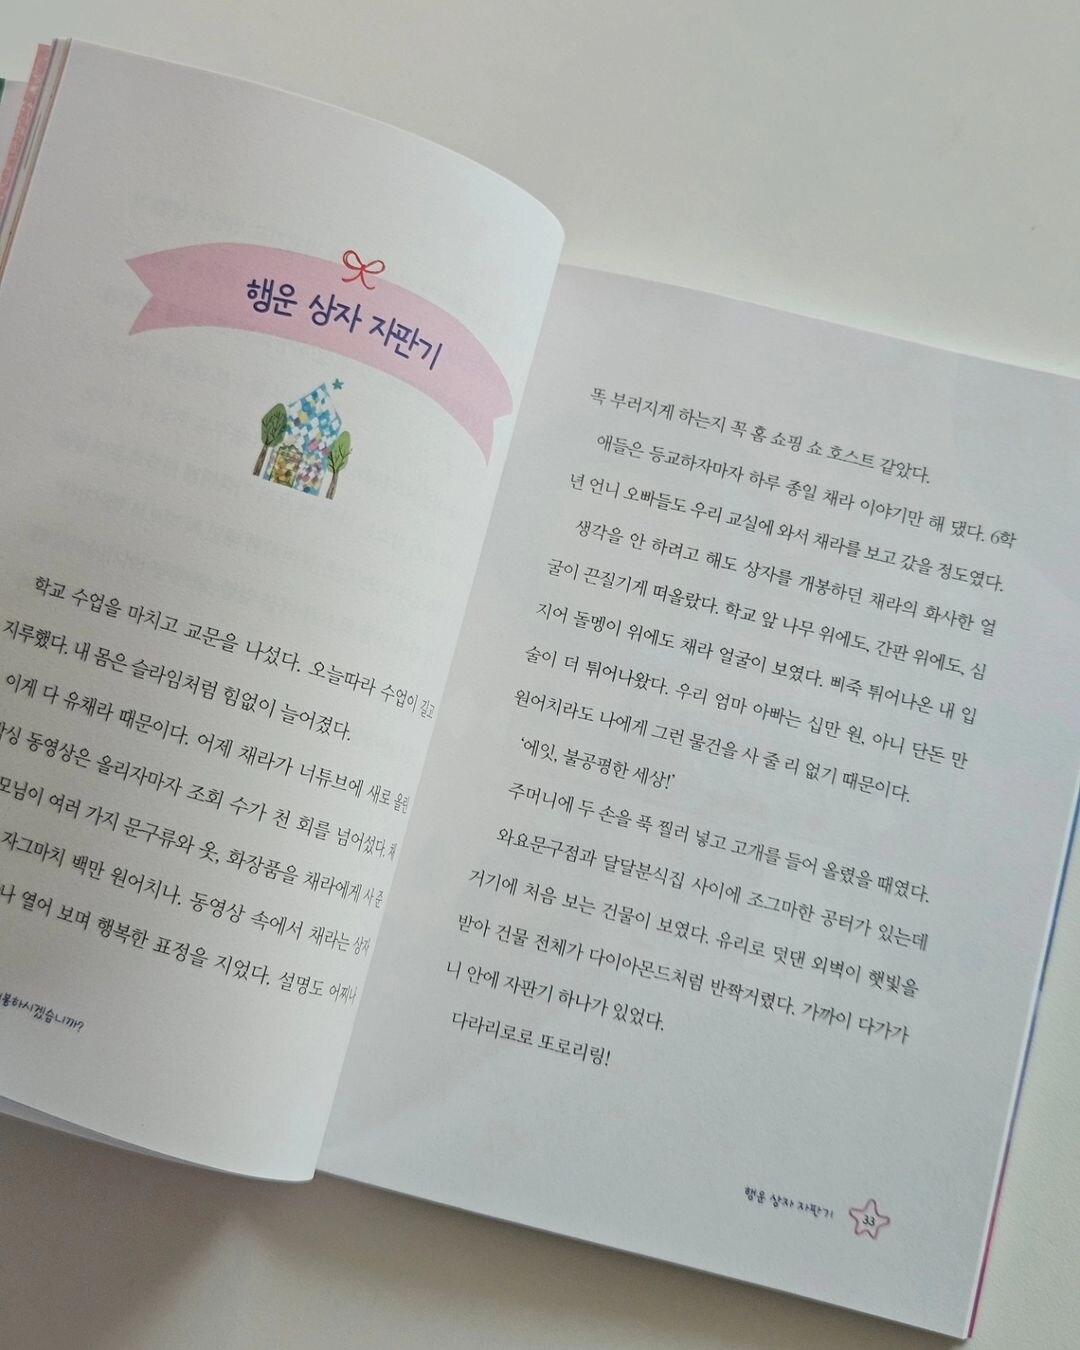 행운 상자 자판기
학교 수업을 마치고 교문을 나섰다. 오늘따라 수업이 길고
지루했다. 내 몸은 슬라임처럼 힘없이 늘어졌다.
이게 다 유채라 때문이다. 어제 채라가 너튜브에 새로 올린
동영상은 올리자마자 조회 수가 천 회를 넘어섰다. 채
모님이 여러 가지 문구류와 옷, 화장품을 채라에게 사 준
자그마치 백만 원어치나. 동영상 속에서 채라는 상자
나 열어 보며 행복한 표정을 지었다. 설명도 어찌나
봉하시겠습니까?
똑 부러지게 하는지 꼭 홈 쇼핑 쇼 호스트 같았다.
애들은 등교하자마자 하루 종일 채라 이야기만 해 댔다. 6학
년 언니 오빠들도 우리 교실에 와서 채라를 보고 갔을 정도였다.
생각을 안 하려고 해도 상자를 개봉하던 채라의 화사한 얼
굴이 끈질기게 떠올랐다. 학교 앞 나무 위에도, 간판 위에도, 심
지어 돌멩이 위에도 채라 얼굴이 보였다. 삐죽 튀어나온 내 입
술이 더 튀어나왔다. 우리 엄마 아빠는 십만 원, 아니 단돈 만
원어치라도 나에게 그런 물건을 사 줄 리 없기 때문이다.
‘에잇, 불공평한 세상!’
주머니에 두 손을 푹 찔러 넣고 고개를 들어 올렸을 때였다.
와요문구점과 달달분식집 사이에 조그마한 공터가 있는데
거기에 처음 보는 건물이 보였다. 유리로 덧댄 외벽이 햇빛을
받아 건물 전체가 다이아몬드처럼 반짝거렸다. 가까이 다가가
니 안에 자판기 하나가 있었다.
다라리로로 또로리링!
행운 상자 자판기 33